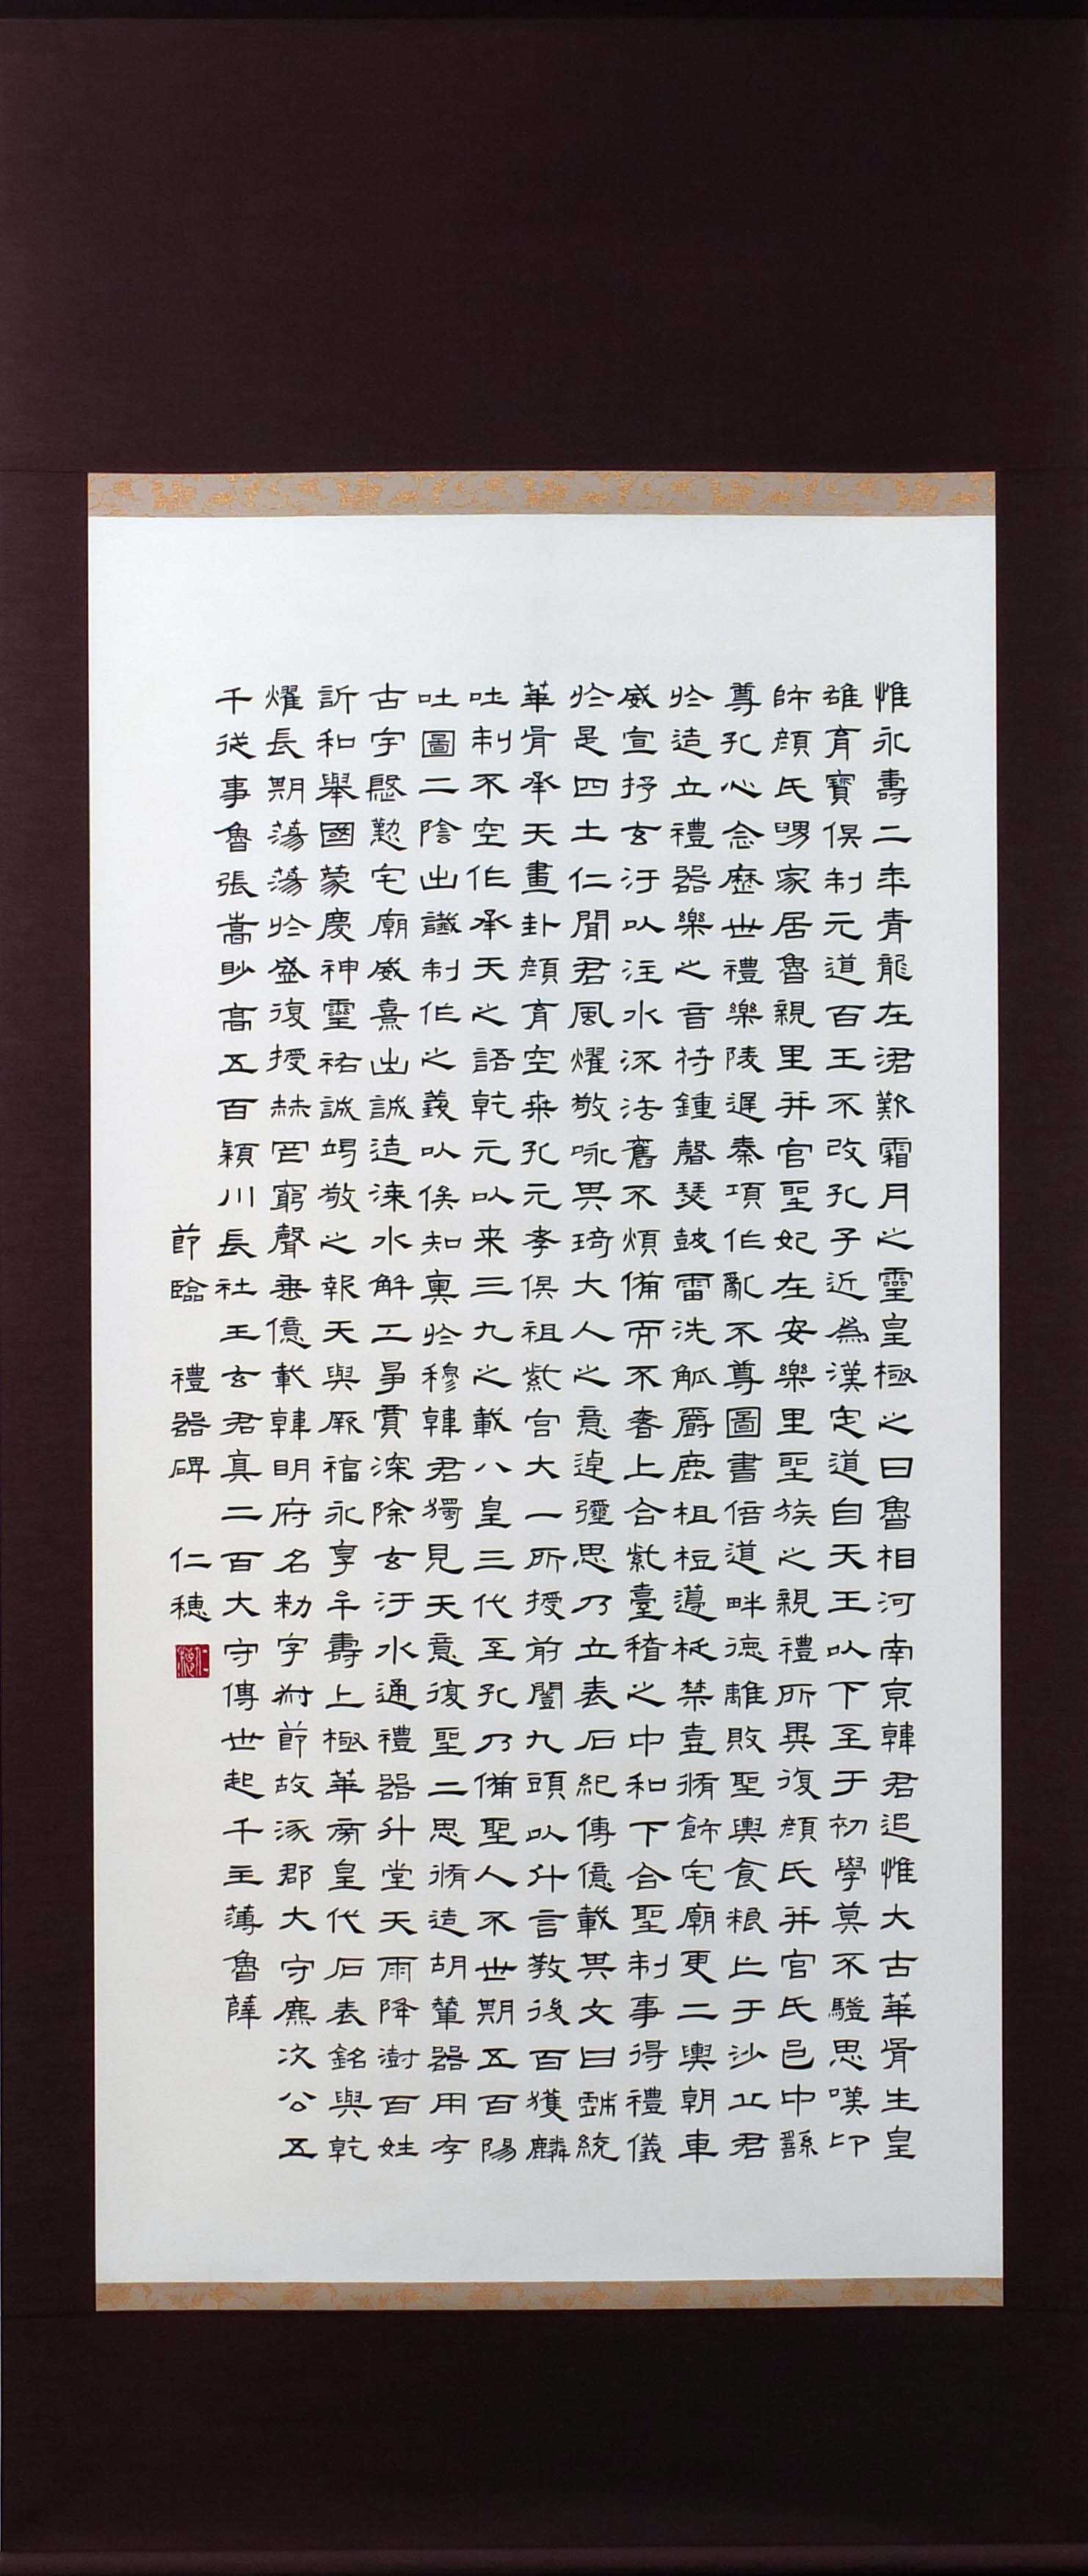 惟永壽二年青龍在涒歎霜月之靈皇極之日魯相河南京韓君追惟大古華胥生皇
雄育寶俱制元道百王不改孔子近為漢定道自天王以下至于初學莫不驗思嘆卬
師顏氏眀家居魯親里并官聖妃在安樂里聖族之親禮所異復顏氏并官氏邑中繇
尊孔心念歷世禮樂陵遲秦項作亂不尊圖書倍道畔德離敗聖輿食糧亡于沙丘君
於造立禮器樂之音符鍾磬瑟鼓雷洗觚爵鹿柤梪籩柉禁壺脩飾宅廟更二輿朝車
威宣抒玄汙以注水流法舊不煩備而不奢上合紫臺稽之中和下合聖制事得禮儀
於是四士仁聞君風燿敬咏其琦大人之意逴彌思乃立表石紀傳億載其文曰皇戲統
華胥承天畫卦顏育空桒孔元孝俱祖紫宮大一所授前闓九頭以升言教後百獲麟
吐制不空作承天之語乾元以来三九之載八皇三代至孔乃備聖人不世期五百陽
吐圖二陰出讖制作之義以俟知奧於穆韓君獨見天意復聖二思脩造胡輦器用存
古字慇懃宅廟威熹出誠造湅水解工爭賈深除玄汙水通禮器升堂天雨降澍百姓
訢和舉國蒙慶神靈祐誠竭敬之報天與厥福永享牟壽上極華旁皇代石表銘與乾
燿長期蕩蕩於盛復授赫罔窮聲垂億載韓明府名勑字叔節故涿郡大守麃次公五
千從事魯張嵩眇高五百潁川長社王玄君真二百大守傳世起千主薄魯薛
節臨 禮器碑 仁穗
仁穗